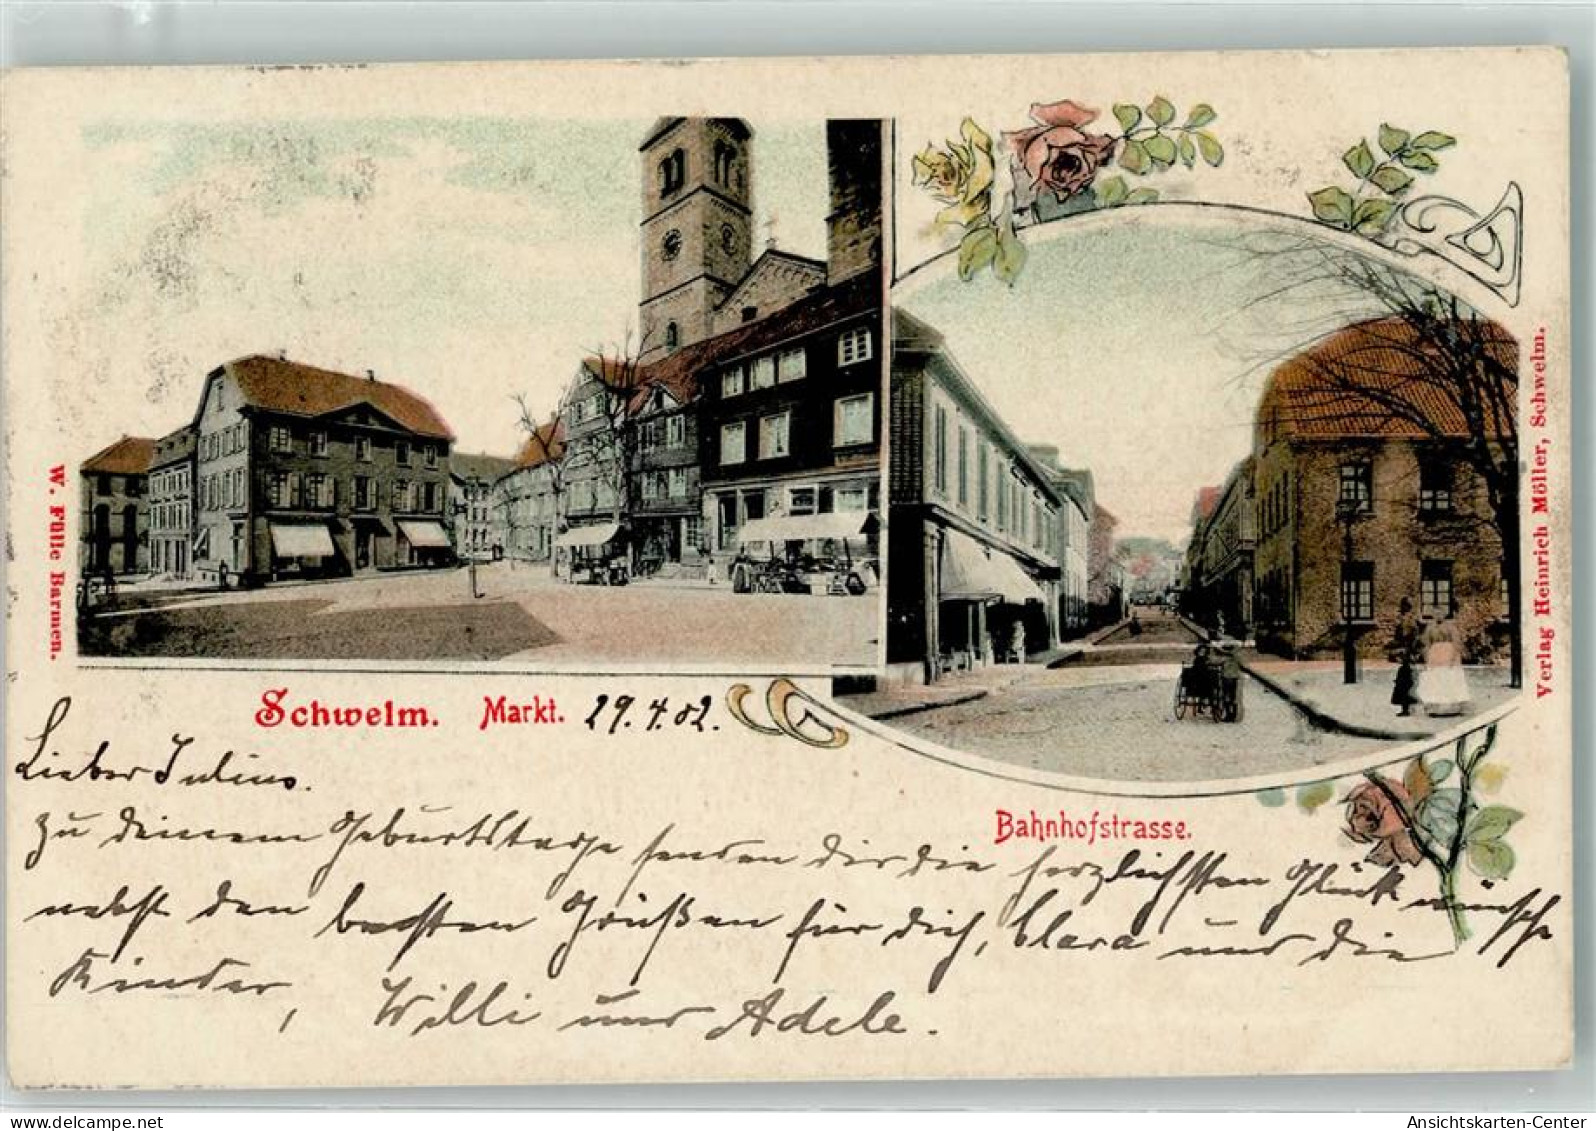 W. Fülle Barmen.
Verlag Heinrich Möller, Schwelm.
Schwelm. Markt. 29.4.02.
Bahnhofstrasse.
Lieber Julius.
Zu deinem Geburtstage senden dir die herzlichsten Glückwünsche
nebst den besten Grüßen für dich, Clara und die
Kinder, Willi und Adele.
oldthing
Ansichtskarten-Center